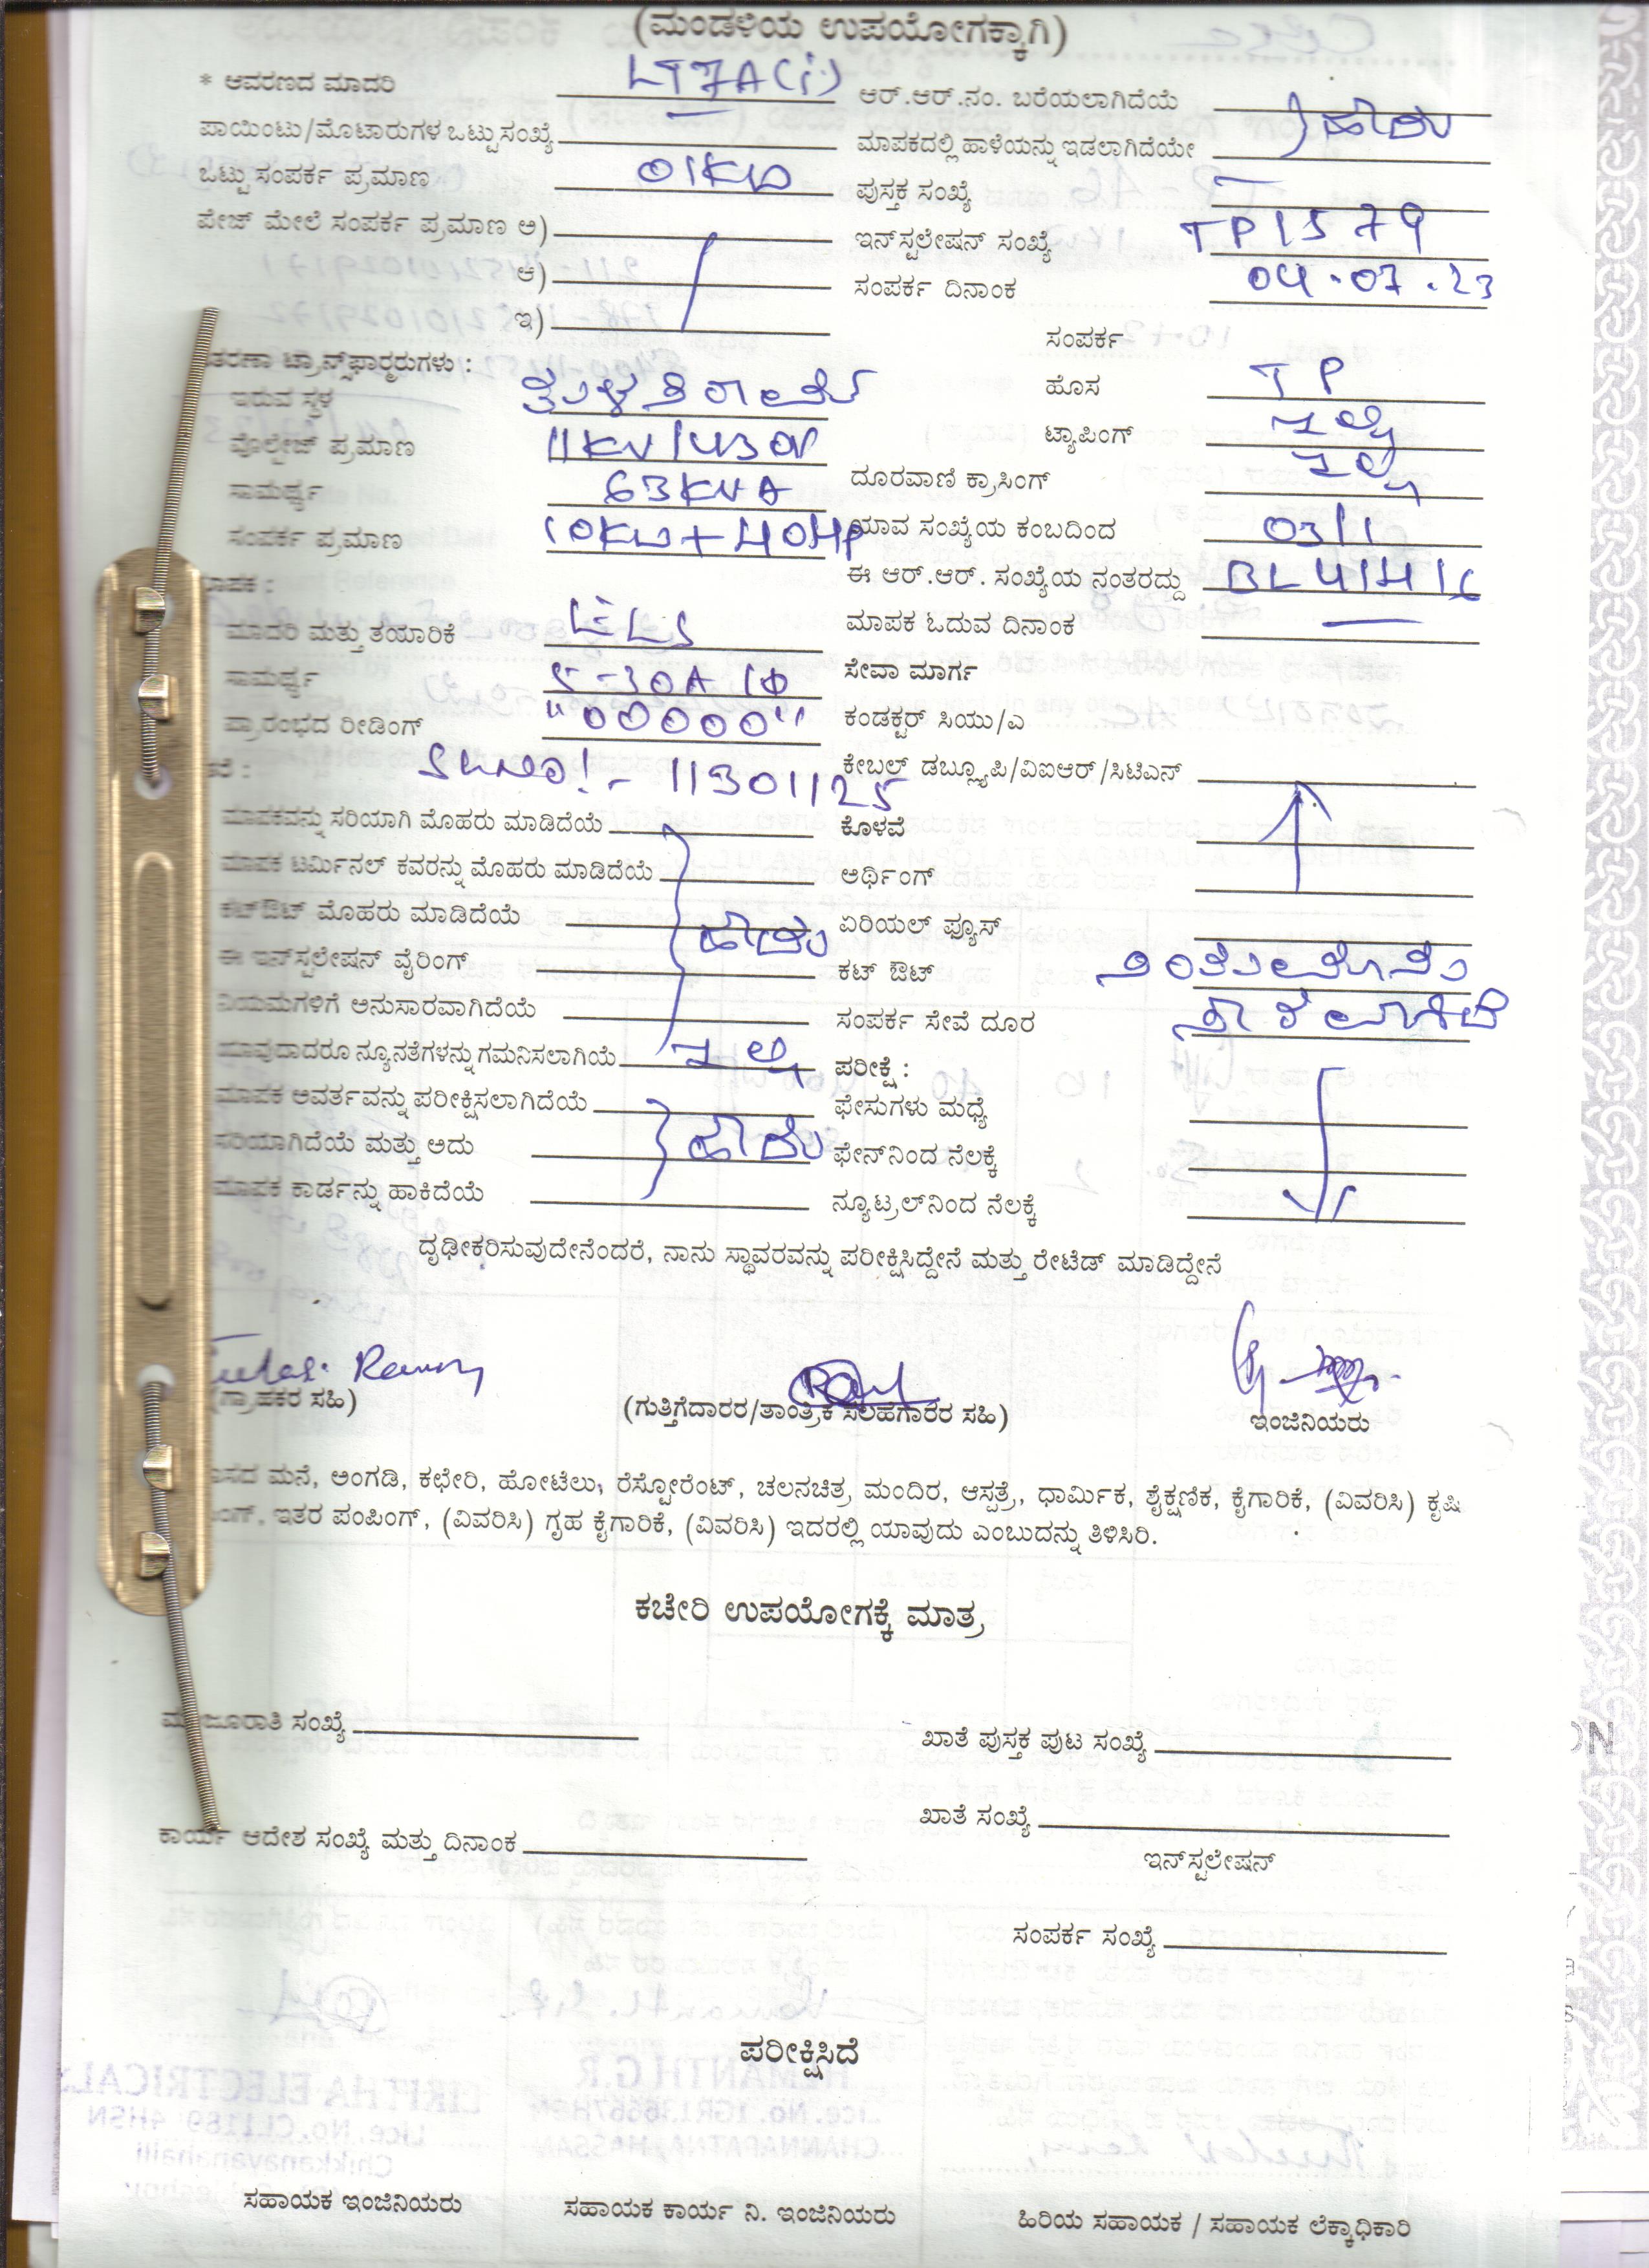 (ಮಂಡಳಿಯ ಉಪಯೋಗಕ್ಕಾಗಿ)
* ಆವರಣದ ಮಾದರಿ LT7A(i) ಆರ್.ಆರ್.ನಂ. ಬರೆಯಲಾಗಿದೆಯೆ
ಪಾಯಿಂಟು/ಮೊಟಾರುಗಳ ಒಟ್ಟು ಸಂಖ್ಯೆ ಮಾಪಕದಲ್ಲಿ ಹಾಳೆಯನ್ನು ಇಡಲಾಗಿದೆಯೇ } ಹೌದು
ಒಟ್ಟು ಸಂಪರ್ಕ ಪ್ರಮಾಣ 01KW ಪುಸ್ತಕ ಸಂಖ್ಯೆ —
ಪೇಜ್ ಮೇಲೆ ಸಂಪರ್ಕ ಪ್ರಮಾಣ ಅ) ಇನ್‌ಸ್ಟಲೇಷನ್ ಸಂಖ್ಯೆ TP1579
ಆ) ಸಂಪರ್ಕ ದಿನಾಂಕ 04.07.23
ಇ) ಸಂಪರ್ಕ
ತರಣಾ ಟ್ರಾನ್ಸ್‌ಫಾರ್ಮರುಗಳು :
ಇರುವ ಸ್ಥಳ ಹೊಸ TP
ವೊಲ್ಟೇಜ್ ಪ್ರಮಾಣ 11KV/430V ಟ್ಯಾಪಿಂಗ್ ಇಲ್ಲ
ಸಾಮರ್ಥ್ಯ 63KVA ದೂರವಾಣಿ ಕ್ರಾಸಿಂಗ್ ಇಲ್ಲ
ಸಂಪರ್ಕ ಪ್ರಮಾಣ 10KW+40HP ಯಾವ ಸಂಖ್ಯೆಯ ಕಂಬದಿಂದ 03/1
ಾಪಕ : ಈ ಆರ್.ಆರ್. ಸಂಖ್ಯೆಯ ನಂತರದ್ದು BL41416
ಮಾದರಿ ಮತ್ತು ತಯಾರಿಕೆ ಮಾಪಕ ಓದುವ ದಿನಾಂಕ —
ಸಾಮರ್ಥ್ಯ 5-30A 1Φ ಸೇವಾ ಮಾರ್ಗ
ಪ್ರಾರಂಭದ ರೀಡಿಂಗ್ "00000" ಕಂಡಕ್ಟರ್ ಸಿಯು/ಎ
Sl.no:- 11301125 ಕೇಬಲ್ ಡಬ್ಲ್ಯೂಪಿ/ವಿಐಆರ್/ಸಿಟಿಎಸ್
ಮಾಪಕವನ್ನು ಸರಿಯಾಗಿ ಮೊಹರು ಮಾಡಿದೆಯೆ ಕೊಳವೆ
ಮಾಪಕ ಟರ್ಮಿನಲ್ ಕವರನ್ನು ಮೊಹರು ಮಾಡಿದೆಯೆ ಅರ್ಥಿಂಗ್
ಕಟ್‌ಔಟ್ ಮೊಹರು ಮಾಡಿದೆಯೆ ಹೌದು ಏರಿಯಲ್ ಫ್ಯೂಸ್
ಈ ಇನ್‌ಸ್ಟಲೇಷನ್ ವೈರಿಂಗ್ ಕಟ್ ಔಟ್
ನಿಯಮಗಳಿಗೆ ಅನುಸಾರವಾಗಿದೆಯೆ ಸಂಪರ್ಕ ಸೇವೆ ದೂರ
ಯಾವುದಾದರೂ ನ್ಯೂನತೆಗಳನ್ನು ಗಮನಿಸಲಾಗಿಯೆ ಇಲ್ಲ ಪರೀಕ್ಷೆ :
ಮಾಪಕ ಆವರ್ತವನ್ನು ಪರೀಕ್ಷಿಸಲಾಗಿದೆಯೆ ಫೇಸುಗಳು ಮಧ್ಯೆ
ಸರಿಯಾಗಿದೆಯೆ ಮತ್ತು ಅದು } ಹೌದು ಫೇಸ್‌ನಿಂದ ನೆಲಕ್ಕೆ
ಮಾಪಕ ಕಾರ್ಡನ್ನು ಹಾಕಿದೆಯೆ ನ್ಯೂಟ್ರಲ್‌ನಿಂದ ನೆಲಕ್ಕೆ
ದೃಢೀಕರಿಸುವುದೇನೆಂದರೆ, ನಾನು ಸ್ಥಾವರವನ್ನು ಪರೀಕ್ಷಿಸಿದ್ದೇನೆ ಮತ್ತು ರೇಟೆಡ್ ಮಾಡಿದ್ದೇನೆ
(ಗ್ರಾಹಕರ ಸಹಿ) (ಗುತ್ತಿಗೆದಾರರ/ತಾಂತ್ರಿಕ ಸಲಹೆಗಾರರ ಸಹಿ) ಇಂಜಿನಿಯರು
ಾಸದ ಮನೆ, ಅಂಗಡಿ, ಕಛೇರಿ, ಹೋಟೆಲು, ರೆಸ್ಟೋರೆಂಟ್, ಚಲನಚಿತ್ರ ಮಂದಿರ, ಆಸ್ಪತ್ರೆ, ಧಾರ್ಮಿಕ, ಶೈಕ್ಷಣಿಕ, ಕೈಗಾರಿಕೆ, (ವಿವರಿಸಿ) ಕೃಷಿ
ಂಗ್, ಇತರ ಪಂಪಿಂಗ್, (ವಿವರಿಸಿ) ಗೃಹ ಕೈಗಾರಿಕೆ, (ವಿವರಿಸಿ) ಇದರಲ್ಲಿ ಯಾವುದು ಎಂಬುದನ್ನು ತಿಳಿಸಿರಿ.
ಕಚೇರಿ ಉಪಯೋಗಕ್ಕೆ ಮಾತ್ರ
ಮಂಜೂರಾತಿ ಸಂಖ್ಯೆ ಖಾತೆ ಪುಸ್ತಕ ಪುಟ ಸಂಖ್ಯೆ
ಖಾತೆ ಸಂಖ್ಯೆ
ಕಾರ್ಯ ಆದೇಶ ಸಂಖ್ಯೆ ಮತ್ತು ದಿನಾಂಕ
ಇನ್‌ಸ್ಟಲೇಷನ್
ಸಂಪರ್ಕ ಸಂಖ್ಯೆ
ಪರೀಕ್ಷಿಸಿದೆ
ಸಹಾಯಕ ಇಂಜಿನಿಯರು ಸಹಾಯಕ ಕಾರ್ಯ ನಿ. ಇಂಜಿನಿಯರು ಹಿರಿಯ ಸಹಾಯಕ / ಸಹಾಯಕ ಲೆಕ್ಕಾಧಿಕಾರಿ